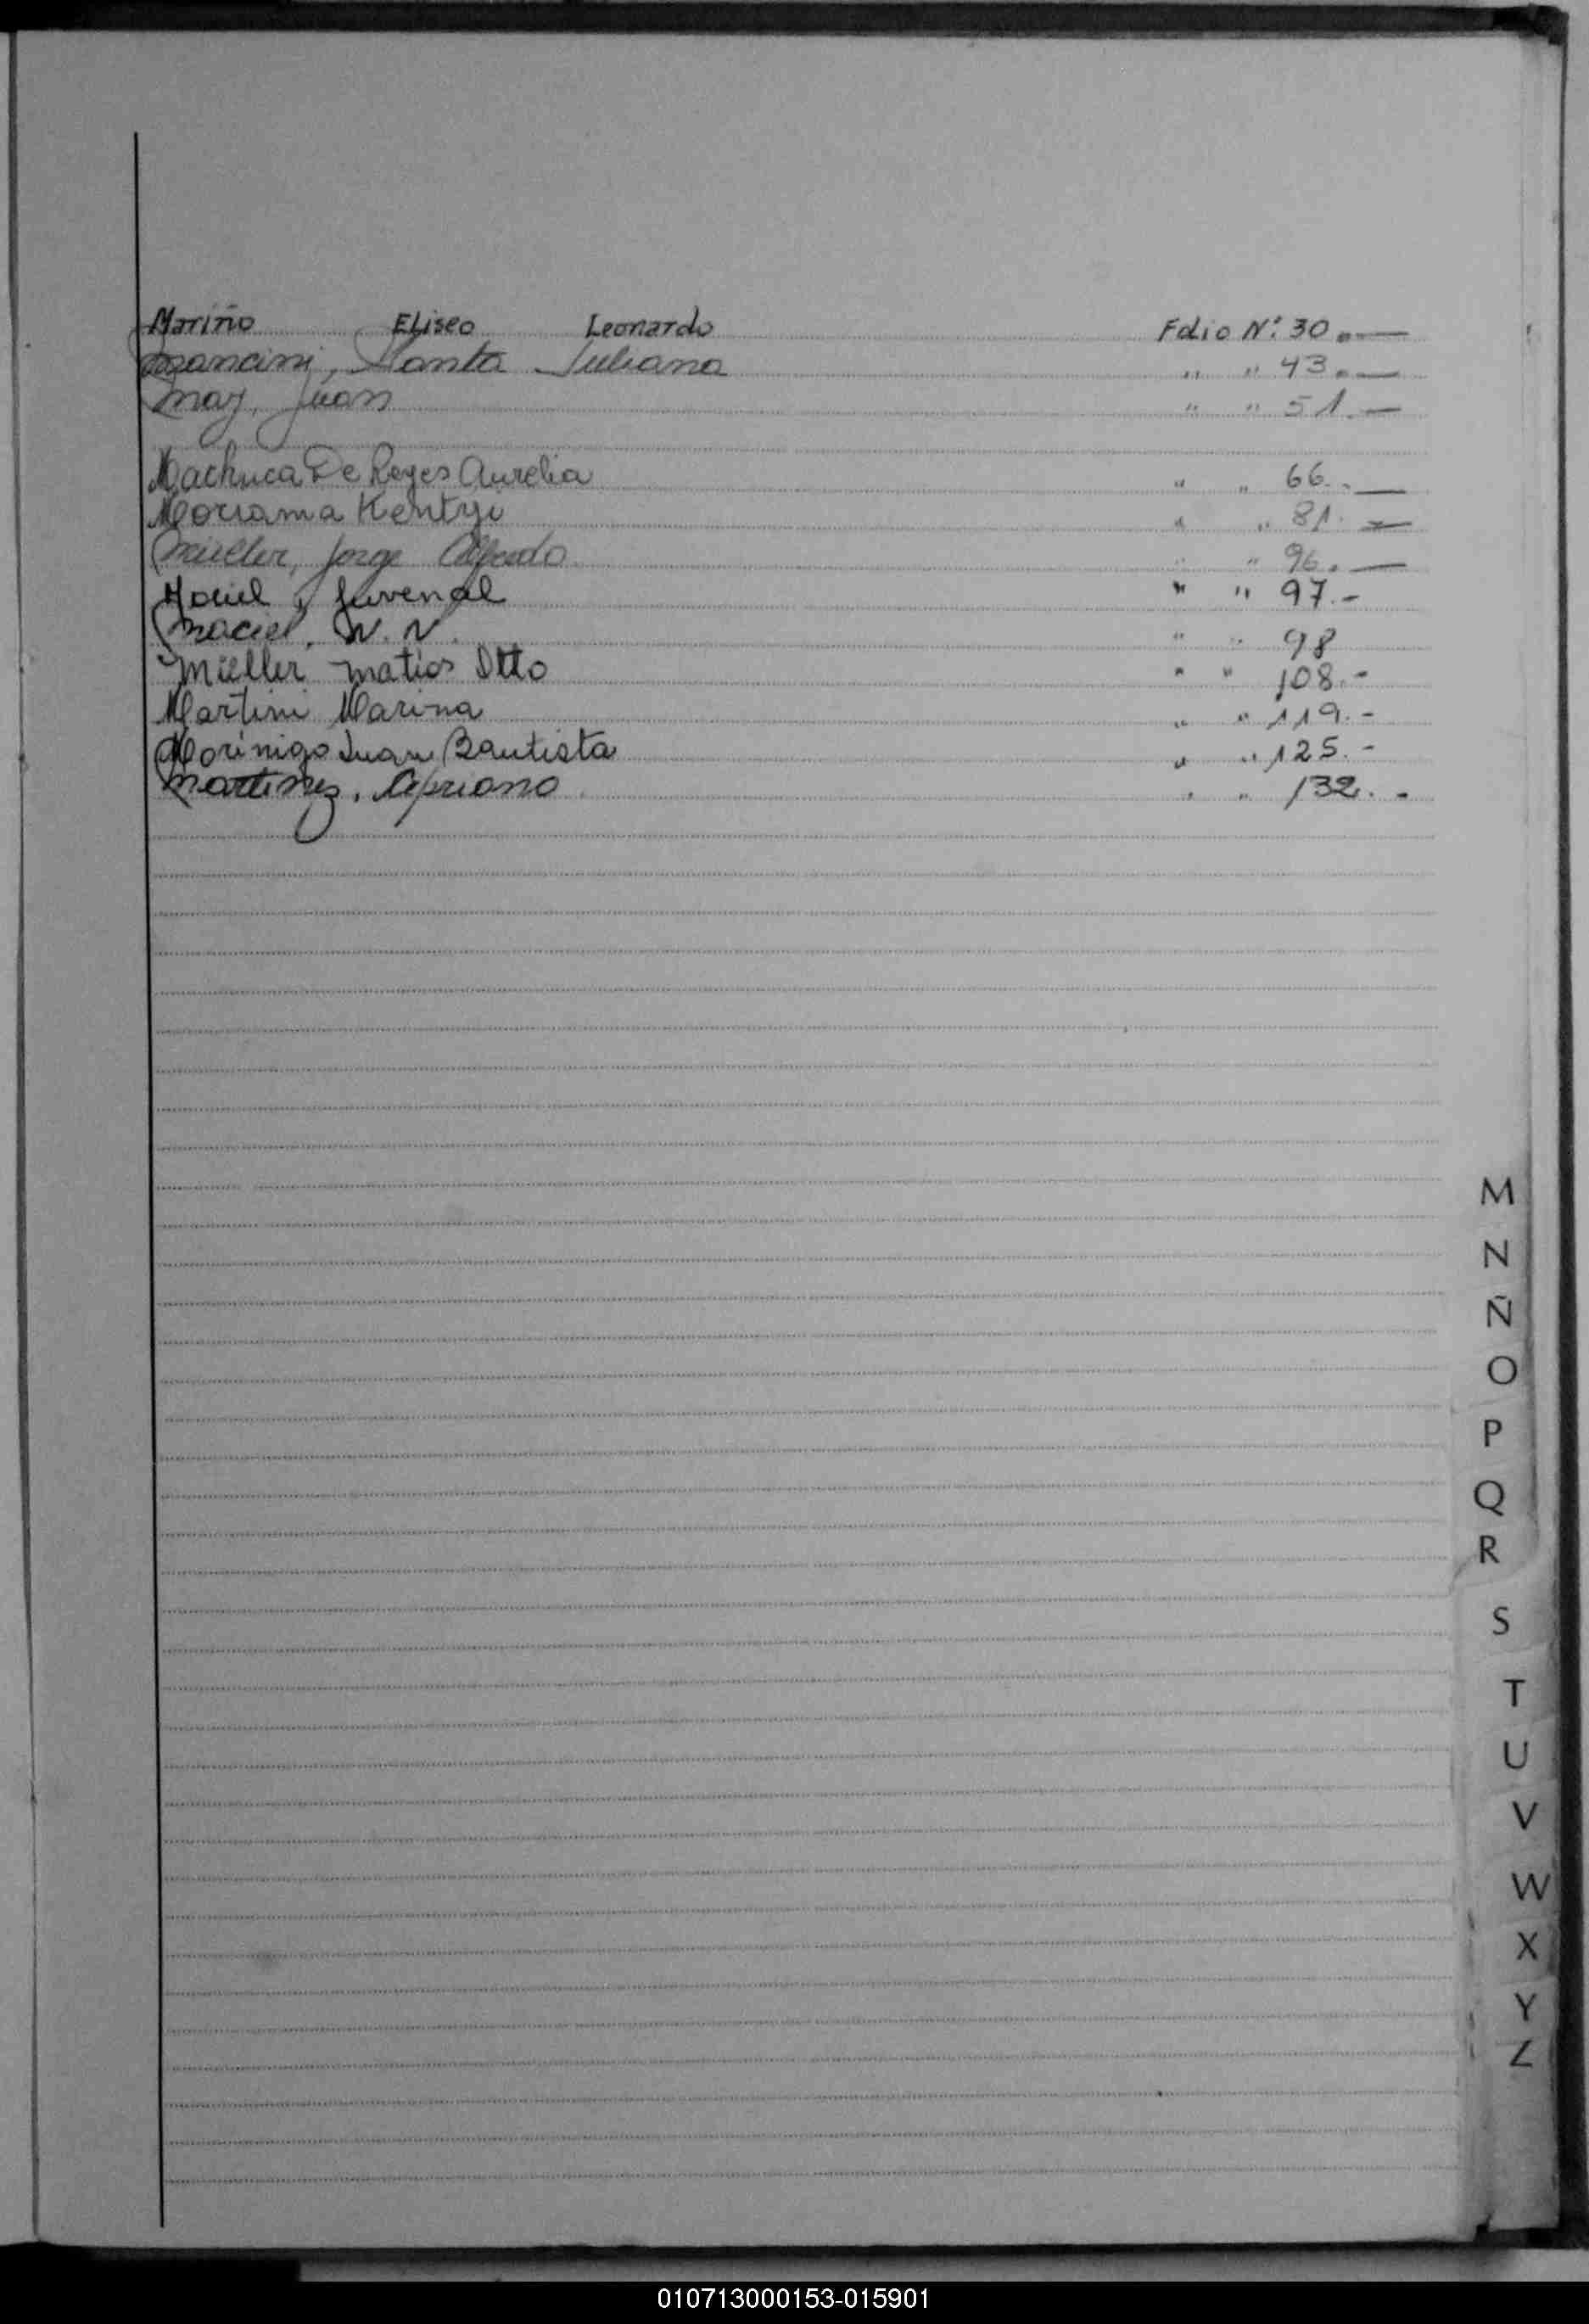 Mariño Eliseo Leonardo Folio Nº 30.—
Mancini, Santa Juliana " " 43.—
May, Juan " " 51.—
Machuca De Reyes Aurelia " " 66.—
Moriama Kentyi " " 81.—
Müller, Jorge Alfredo " " 96.—
Maciel, Juvenal " " 97.-
Maciel, N. N. " " 98
Müller Matias Otto " " 108.-
Martini Marina " " 119.-
Morínigo Juan Bautista " " 125.-
Martinez, Cipriano " " 132.-
M
N
Ñ
O
P
Q
R
S
T
U
V
W
X
Y
Z
010713000153-015901